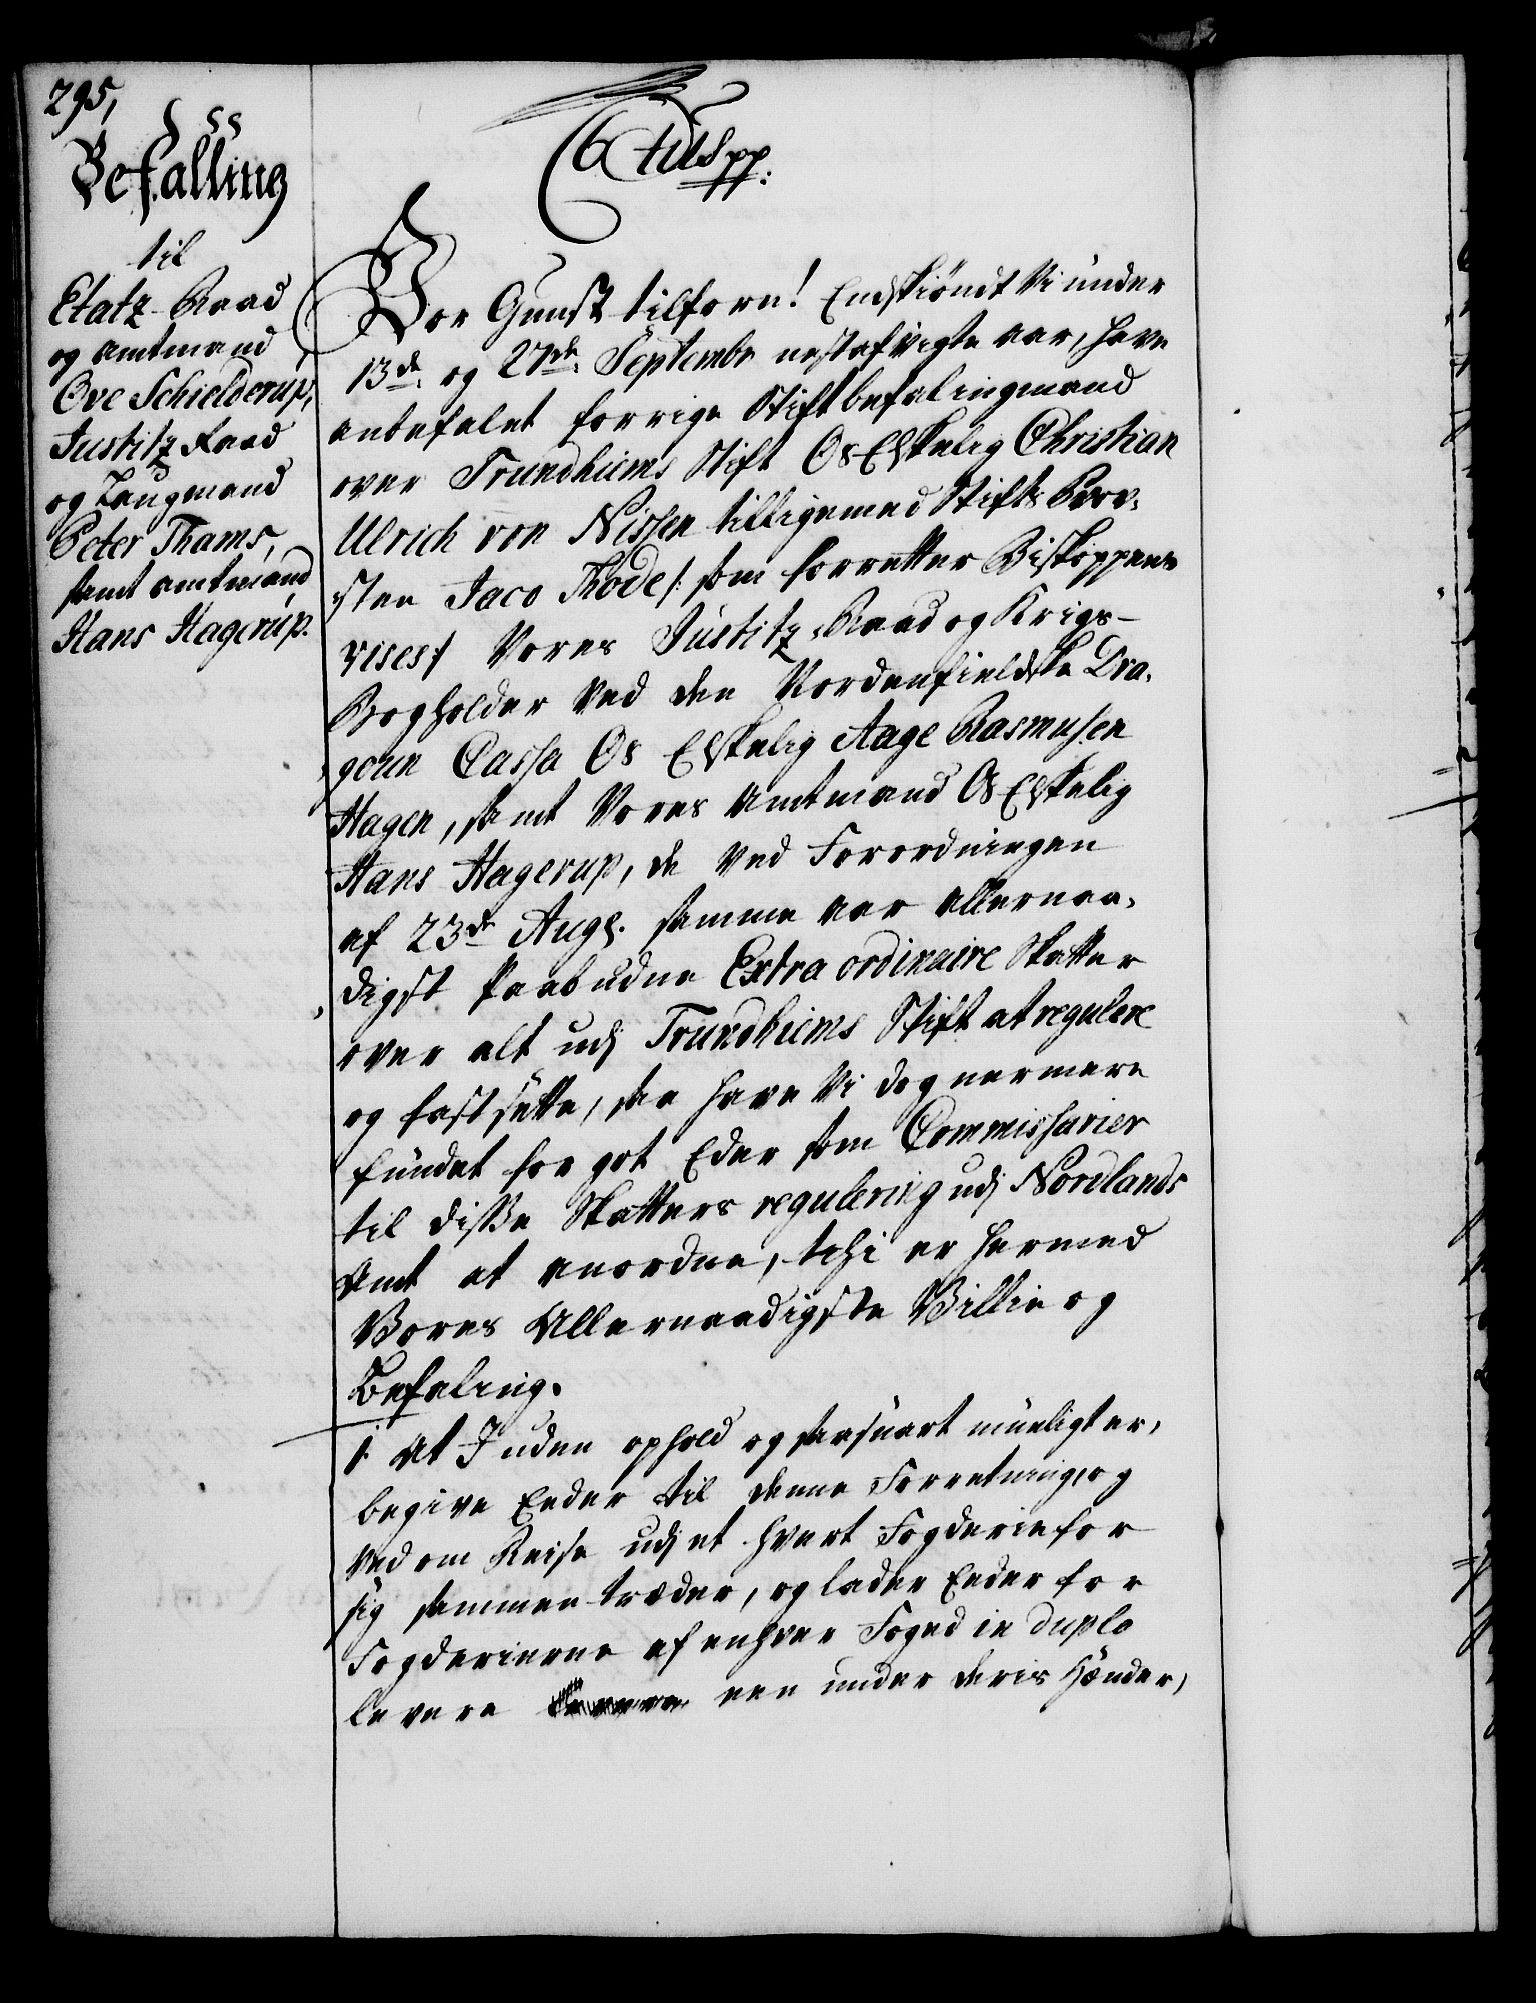 295,
Befalling
til
Etatz-Raad
og Amtmand
Ove Schielderup,
Justitz Raad
og Laugmand
Peter Thams,
samt Amtmand
Hans Hagerup.
C 6 tus pp:
Vor Gunst tilforn! Endskiöndt Vi under
13de og 27de Septembr nestafvigte aar, have
anbefalet forrige Stiftbefalingmand
over Trundhiems Stift Os Elskelig Christian
Ulrich von Nissen tilligemed Stifts Prov-
sten Jaco Kode /: som forretter Biskoppens
vises :/ Vores Justitz-Raad og Krigs-
Bogholder ved den Nordenfieldske Dra-
goun Cassa Os Elskelig Aage Rasmusen
Hagen, samt Vores Amtmand Os Elskelig
Hans Hagerup, de ved Forordningen
af 23de Aug. samme aar allernaa-
digst Paabudne Extra ordinaire Skatter
over alt udj Trundhiems Stift at regulere
og fastsette, saa have Vi dog nermere
fundet for got Eder som Commissarier
til disse Skatters regulering udj Nordlands
Amt at anordne, thi er hermed
Vores Allernaadigste Villie og
Befaling.
1. At I uden ophold og saasnart mueligt er,
begive Eder til denne Forretning, og
ved om Reise udj et hvert Fogderie for
sig sammen træder, og lader Eder for
Fogderierne af enhver Foged in duplo
levere een under deris Hænder,